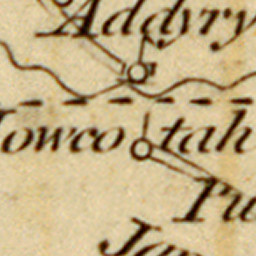 Addyry
owcotah
Pu
Ja